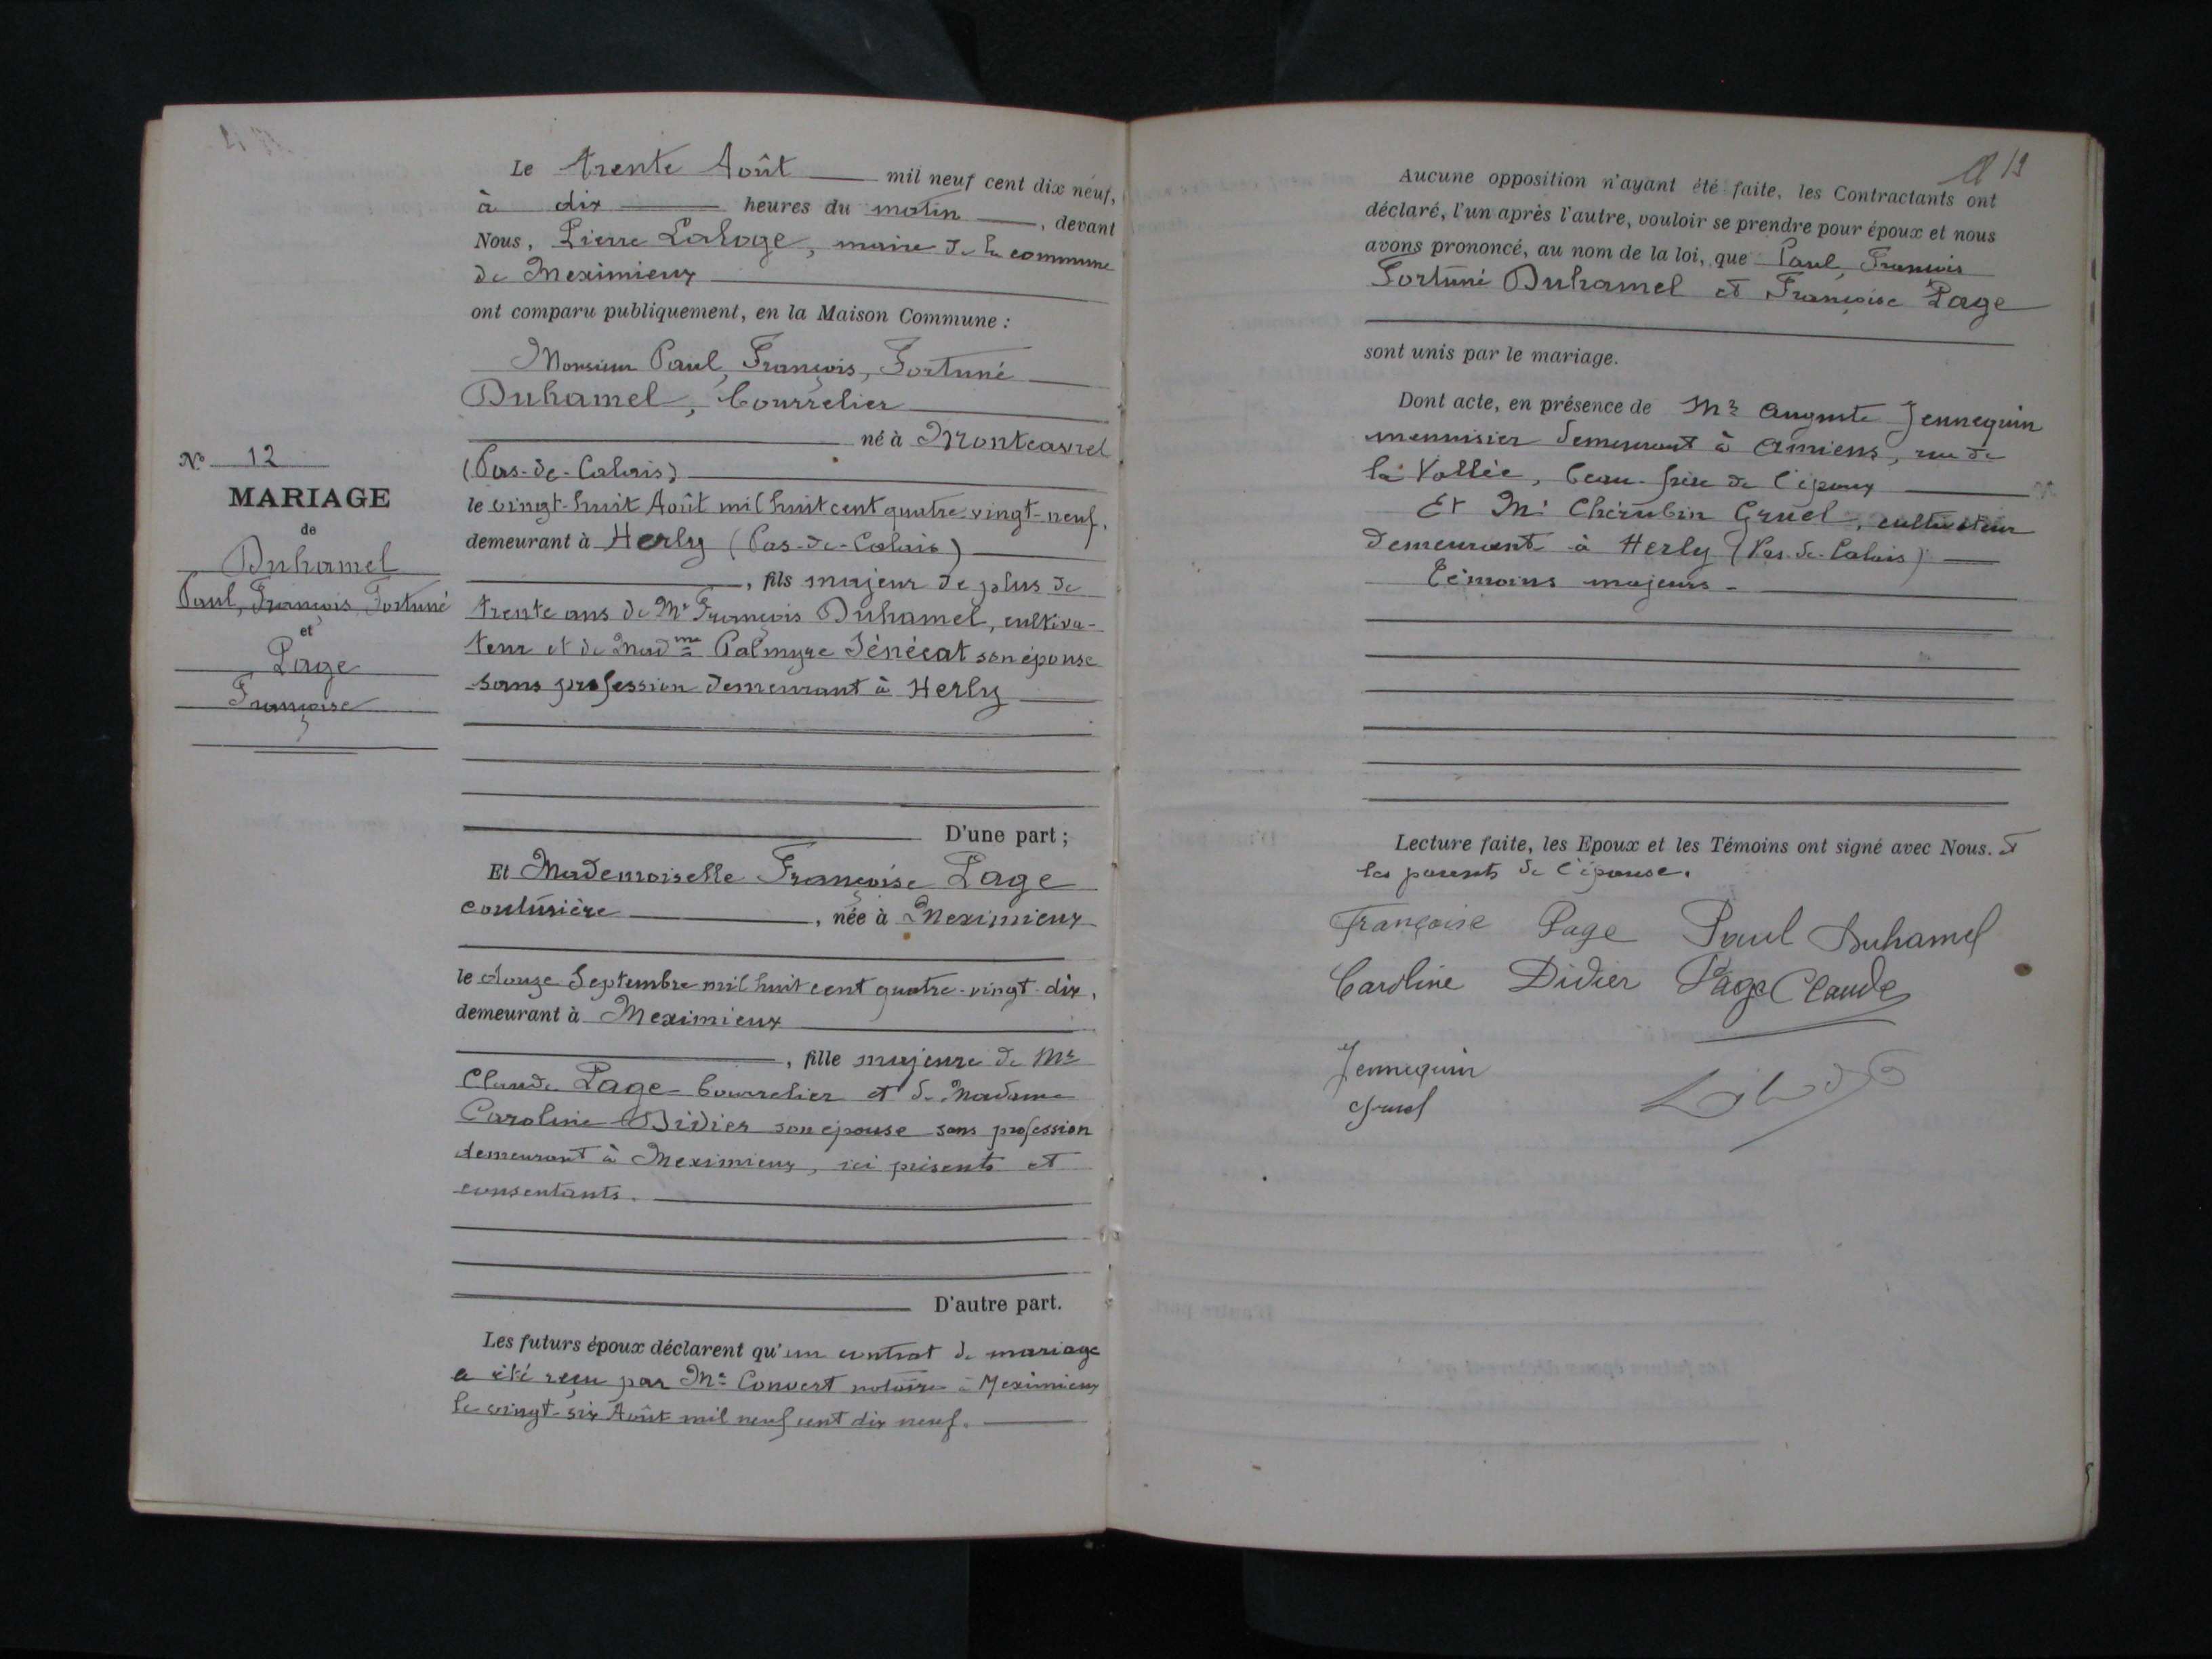 Le trente Août mil neuf cent dix neuf,
à dix heures du matin, devant
Nous, Pierre Laloge, maire de la commune
de Meximieux
ont comparu publiquement, en la Maison Commune :
Monsieur Paul, François, Fortuné
Duhamel, Bourrelier
né à Montcavrel
(Pas-de-Calais)
le vingt-huit Août mil huit cent quatre-vingt-neuf,
demeurant à Herly (Pas-de-Calais)
, fils majeur de plus de
trente ans de Mr François Duhamel, cultiva-
teur et de Madme Palmyre Sénécat son épouse
sans profession demeurant à Herly
D'une part ;
N° 12
MARIAGE
de
Duhamel
Paul, François, Fortuné
et
Page
Françoise
Et Mademoiselle Françoise Page
couturière, née à Meximieux
le douze Septembre mil huit cent quatre-vingt-dix,
demeurant à Meximieux
, fille majeure de Mr
Claude Page bourrelier et de Madame
Caroline Didier son épouse sans profession
demeurant à Meximieux, ici présents et
consentants.
D'autre part.
Les futurs époux déclarent qu'un contrat de mariage
a été reçu par Me Convert notaire à Meximieux
le vingt-six Août mil neuf cent dix neuf.
19
Aucune opposition n'ayant été faite, les Contractants ont
déclaré, l'un après l'autre, vouloir se prendre pour époux et nous
avons prononcé, au nom de la loi, que Paul, François
Fortuné Duhamel et Françoise Page
sont unis par le mariage.
Dont acte, en présence de Mr Auguste Jennequin
menuisier demeurant à Amiens, rue de
la Vallée, beau-frère de l'époux
Et Mr Chérubin Gruel, cultivateur
demeurant à Herly (Pas-de-Calais)
Témoins majeurs -
Lecture faite, les Epoux et les Témoins ont signé avec Nous. et
les parents de l'épouse.
Françoise Page Paul Duhamel
Caroline Didier Page Claude
Jennequin
Gruel